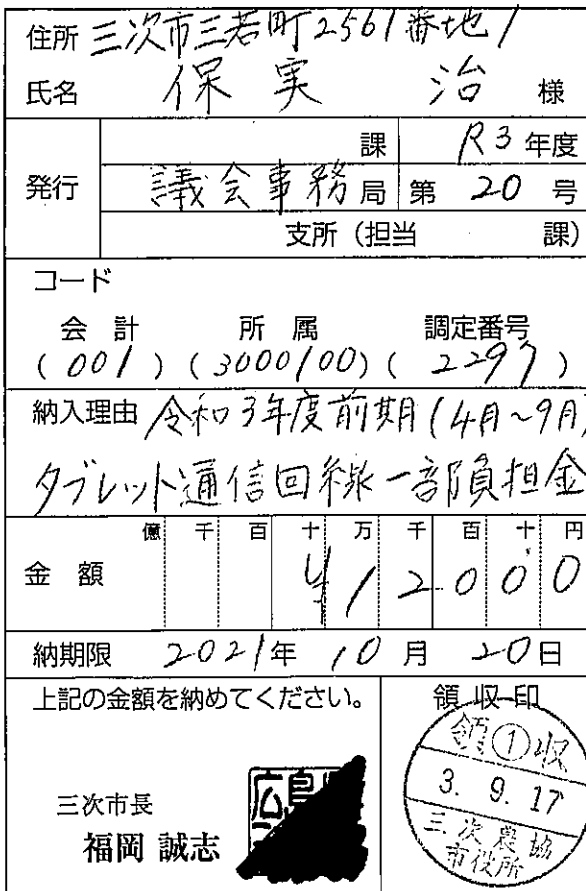 住所 三次市三若町2561番地1
氏名 保実 治 様
発行
課 R3年度
議会事務局 第 20 号
支所(担当 課)
コード
会計 所属 調定番号
(001) (3000100) (2297)
納入理由 令和3年度前期(4月~9月)
タブレット通信回線一部負担金
億 千 百 十 万 千 百 十 円
金額 ¥12000
納期限 2021年 10月 20日
上記の金額を納めてください。
三次市長
福岡 誠志
広島
領収印
領①収
3. 9. 17
三次農協
市役所